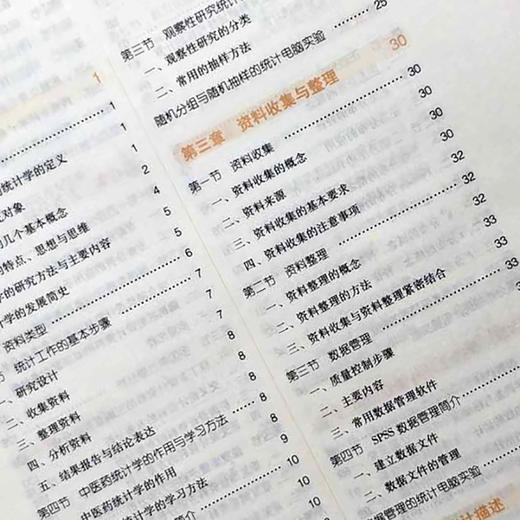 1
1
统计学的定义 1
对象 2
几个基本概念 4
特点、思想与思维 5
学的研究方法与主要内容 5
计学的发展简史 6
资料类型 7
统计工作的基本步骤 7
一、研究设计 7
二、收集资料 8
三、整理资料 8
四、分析资料 8
五、结果报告与结论表达 8
第四节 中医药统计学的作用与学习方法 9
中医药统计学的作用 10
统计学的学习方法 10
简介 10
第三节 观察性研究统计
一、观察性研究的分类
二、常用的抽样方法 25
随机分组与随机抽样的统计电脑实验
第三章 资料收集与整理 30
第一节 资料收集 30
一、资料收集的概念 30
二、资料来源 30
三、资料收集的基本要求 32
四、资料收集的注意事项 32
第二节 资料整理 32
一、资料整理的概念 33
二、资料整理的方法 33
三、资料收集与资料整理紧密结合 33
第三节 数据管理
一、质量控制步骤
二、主要内容
三、常用数据管理软件
第四节 SPSS 数据管理简介
一、建立数据文件
二、数据文件的管理
数据管理的统计电脑实验
计描述